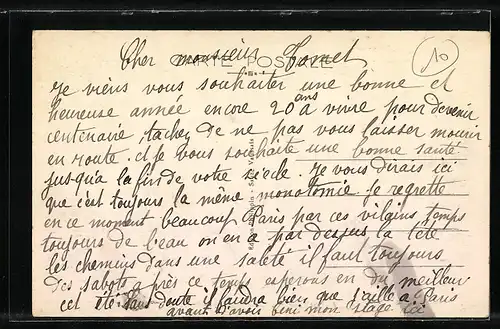 Cher monsieur Tomet
CARTE POSTALE
10
Je viens vous souhaiter une bonne et
heureuse année encore 20 ans a vivre pour devenir
centenaire tachez de ne pas vous laisser mourir
en route. et je vous souhaite une bonne santé
jusqu'a la fin de votre siecle. Je vous dirais ici
que c'est toujours la même monotomie. Je regrette
en ce moment beaucoup Paris par ces vilains temps
toujours de beau on en a par dessus la tête
les chemins dans une saleté il faut toujours
des sabots après ce temps esperons en du meilleur
cet été. Sans doute il faudra bien que j'aille a Paris
avant d'avoir fini mon stage ici